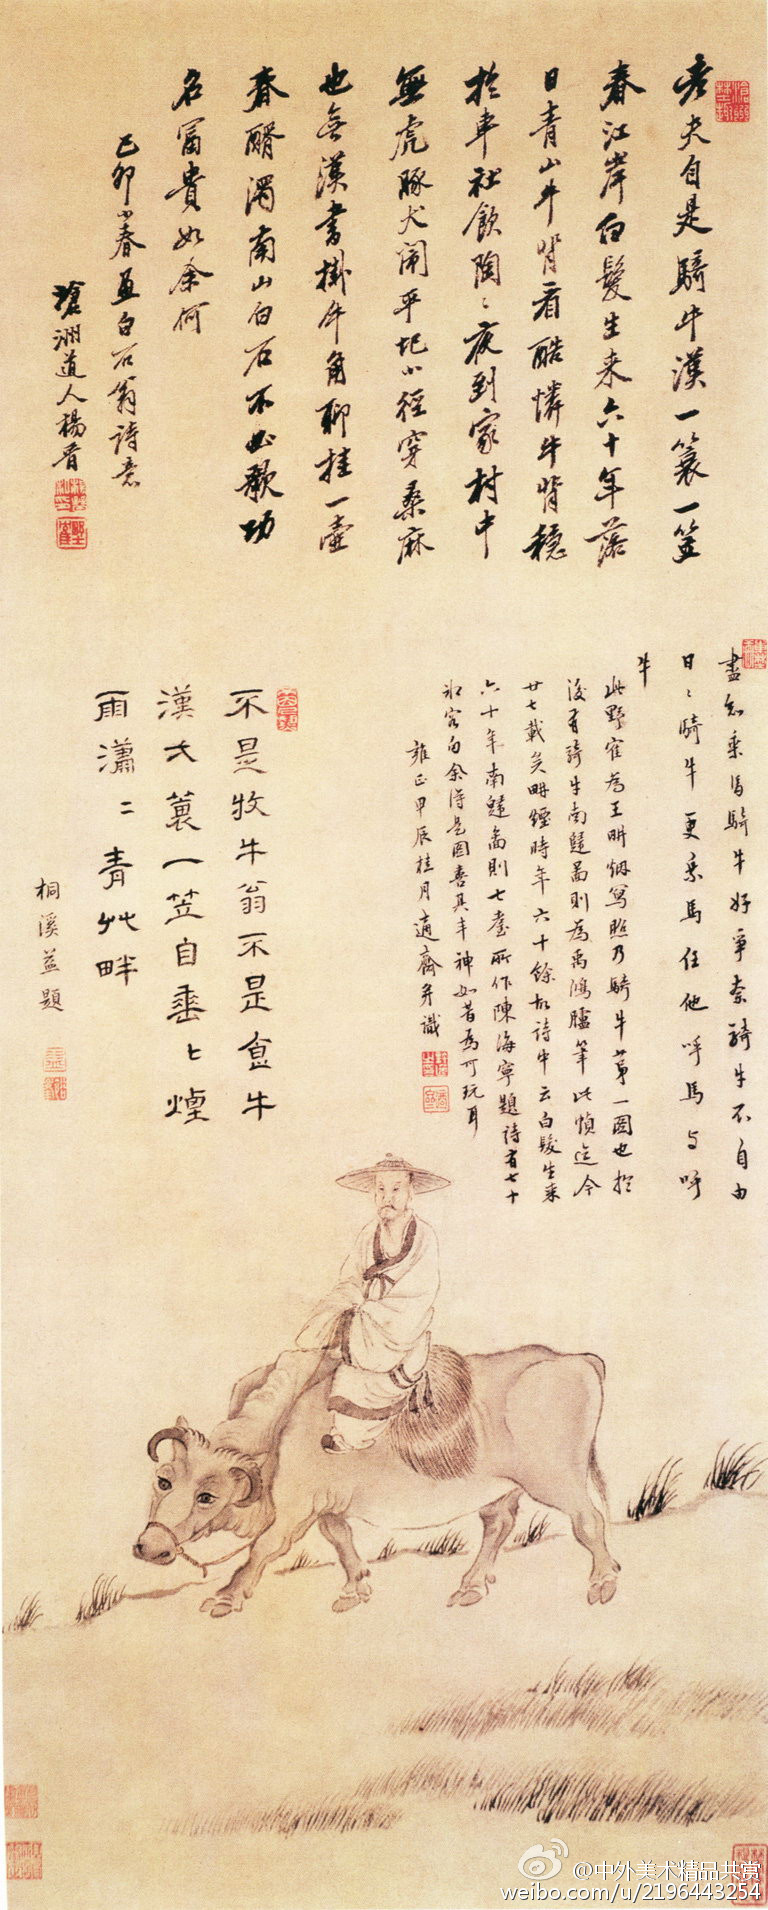 老夫自是騎牛漢一蓑一笠
春江岸白髮生来六十年落
日青山牛背看酷憐牛背穩
於車社飲陶〻夜到家村中
無虎豚犬鬧平圯小徑穿桑麻
也無漢書掛牛角聊挂一壺
春醑濁南山白石不必歌功
名富貴如余何
己卯小春畫白石翁詩意
滄洲道人楊晉
盡知乘馬騎牛好爭奈騎牛不自由
日〻騎牛更乘馬任他呼馬与呼
牛
此野寉為王畊烟寫照乃騎牛第一圖也於
後有騎牛南歸圖則為禹鴻臚筆此幀迄今
廿七載矣畊煙時年六十餘故詩中云白髮生来
六十年南歸圖則七耋所作陳海寧題詩有七十
句余得是圖喜其丰神如昔為可玩耳
雍正甲辰桂月適齋并識
不是牧牛翁不是食牛
漢弌蓑一笠自垂〻煙
雨瀟〻青艸畔
桐溪益題
@中外美术精品共赏
weibo.com/u/2196443254